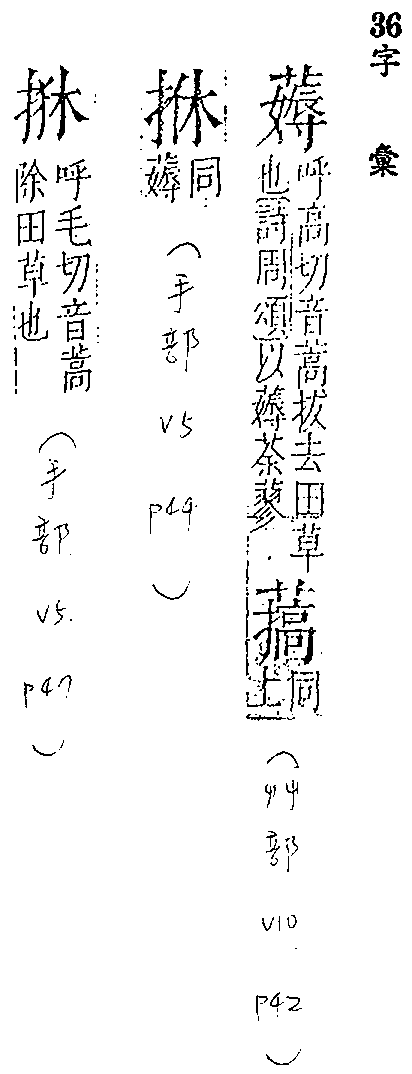 36字彙
薅
呼高切音蒿拔去田草
也詩周頌以薅荼蓼
同
上
(艸部 v10 p42)
同
薅
(手部 v5 p44)
呼毛切音蒿
除田草也
(手部 v5. p47)